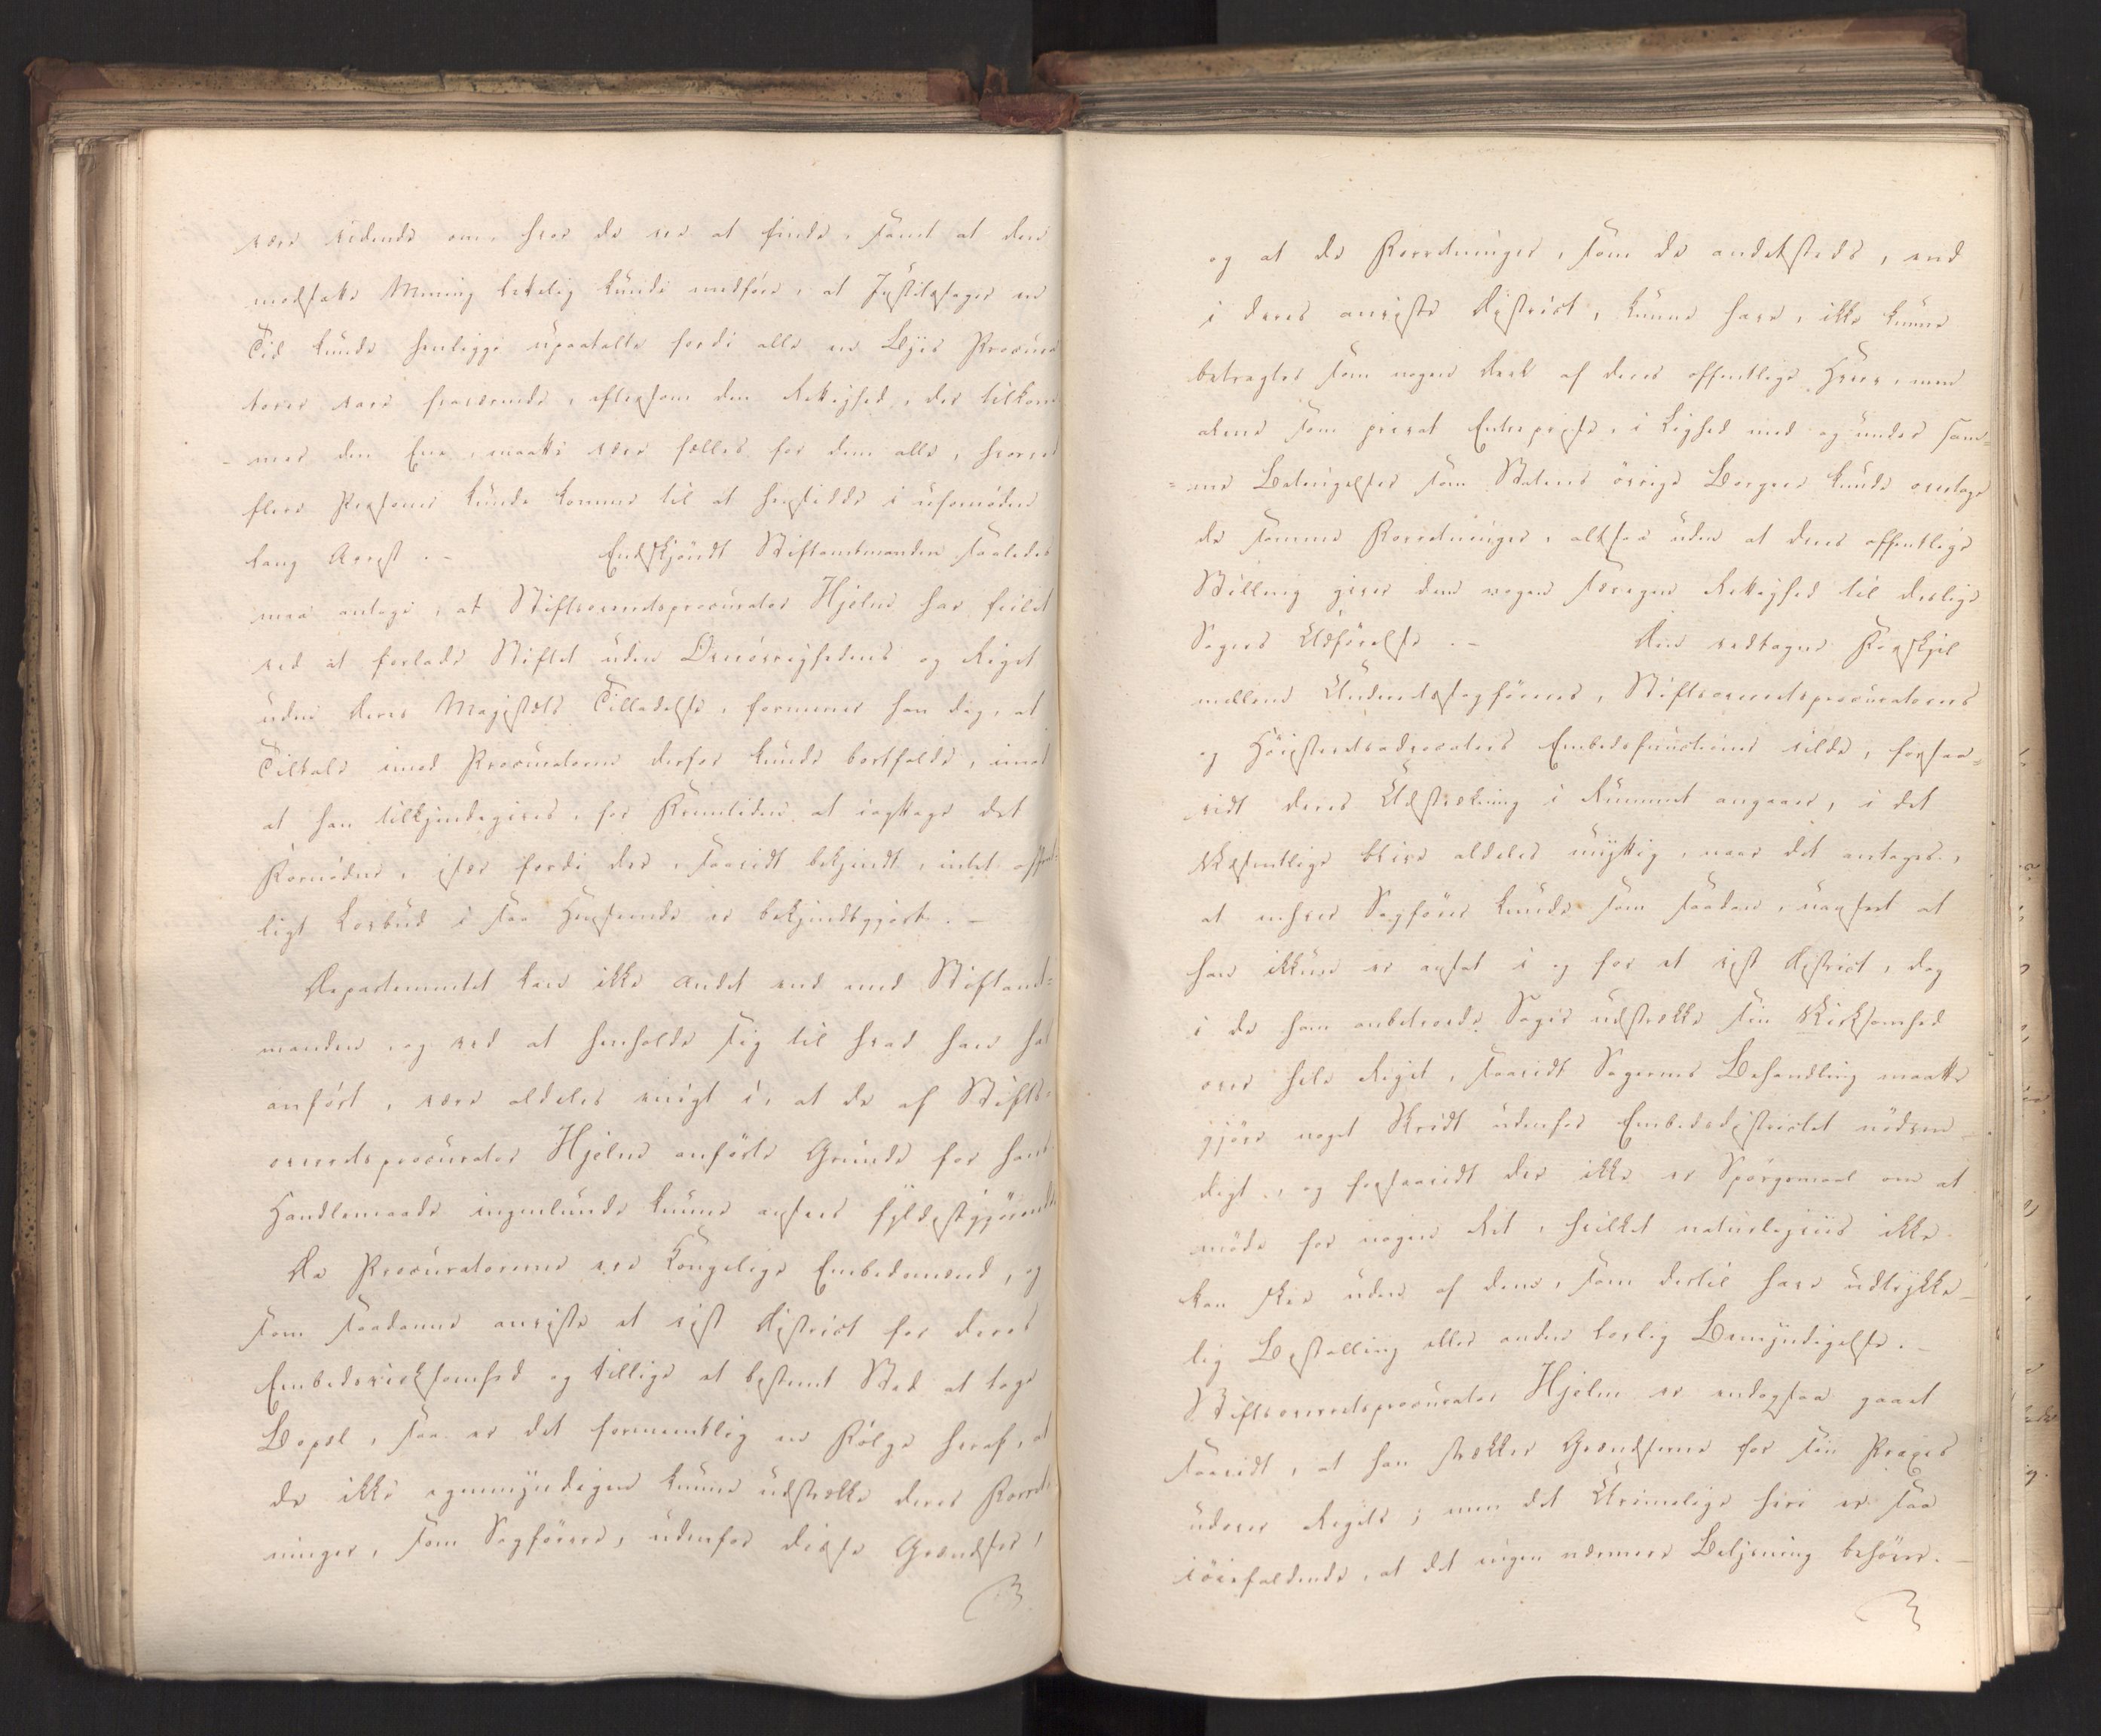 være vidende om, hvor de ere at finde, samt at den
modsatte Mening letelig kunde medføre, at Justitssager en
Tid kunde henligge upaatalte fordi alle en Byes Procura
torer vare fraværende, eftersom den Rettighed, der tilkom
mer den Ene, maatte være fælles for dem alle, hvorved
flere Personer kunde komme til at hensidde i uformøden
lang Arrest. - Endskjøndt Stiftamtmanden saaledes
maa antage, at Stiftsoverretsprocurator Hjelm har feilet
ved at forlade Stiftet uden Øvrighedens og Riget
uden Deres Majestæts Tilladelse, formener han dog, at
Tiltale imod Procuratoren derfor kunde bortfalde, imod
at han tilkjendegives, for Fremtiden at iagttage det
Fornødne, især fordi der, saavidt bekjendt, intet offent-
ligt Forbud i saa Henseende er bekjendtgjort. -
Departementet kan ikke andet end med Stiftamt-
manden, og ved at henholde sig til hvad han har
anført, være aldeles enigt i, at de af Stifts-
overretsprocurator Hjelm anførte Grunde for hans
Handlemaade ingenlunde kunne ansees fyldestgjørende
Da Procuratorerne ere Kongelige Embedsmænd, og
som saadanne anviste et vist District for deres
Embedsvirksomhed og tillige et bestemt Sted at tage
Bopæl, saa er det formeentlig en Følge heraf, at
de ikke egenmyndigen kunne udstrække deres Forret-
ninger, som Sagførere, udenfor disse Grændser,
og at de Forretninger, som de andetsteds, end
i deres anviste District, kunne have, ikke kunne
betragtes som nogen Deel af deres offentlige Hverv, men
alene som privat Entreprise, i Lighed med og under sam-
= me Betingelser som Statens övrige Borgere kunde overtage
de samme Forretninger, altsaa uden at deres offentlige
Stilling giver dem nogen særegen Rettighed til deslige
Sagers Udførelse. - Den vedtagne Forskjel
mellem Underretssagføreres, Stiftsoverretsprocuratorers
og Höiesteretsadvocaters Embedsfunctioner vilde, forsaa-
vidt deres Udstrækning i Rummet angaaer, i det
Væsentlige blive aldeles unyttig, naar det antages,
at enhver Sagfører kunde som saadan, uanseet at
han ikkun er ansat i og for et vist District, dog
i de ham anbetroede Sager udstrække sin Virksomhed
over hele Riget, saavidt Sagernes Behandling maatte
gjöre noget Skridt udenfor Embedsdistrictet nödven
digt, og forsaavidt der ikke er Spörgsmaal om at
møde for nogen Ret, hvilket naturligviis ikke
kan skee uden af dem, som dertil have udtrykke-
lig Bestalling eller anden lovlig Bemyndigelse. -
Stiftsoverretsprocurator Hjelm er endogsaa gaaet
saavidt, at han trækker Grændserne for sin Praxis
udover Riget; men det Urimelige heri er saa
iöinefaldende, at det ingen nærmere Belysning behöver. -